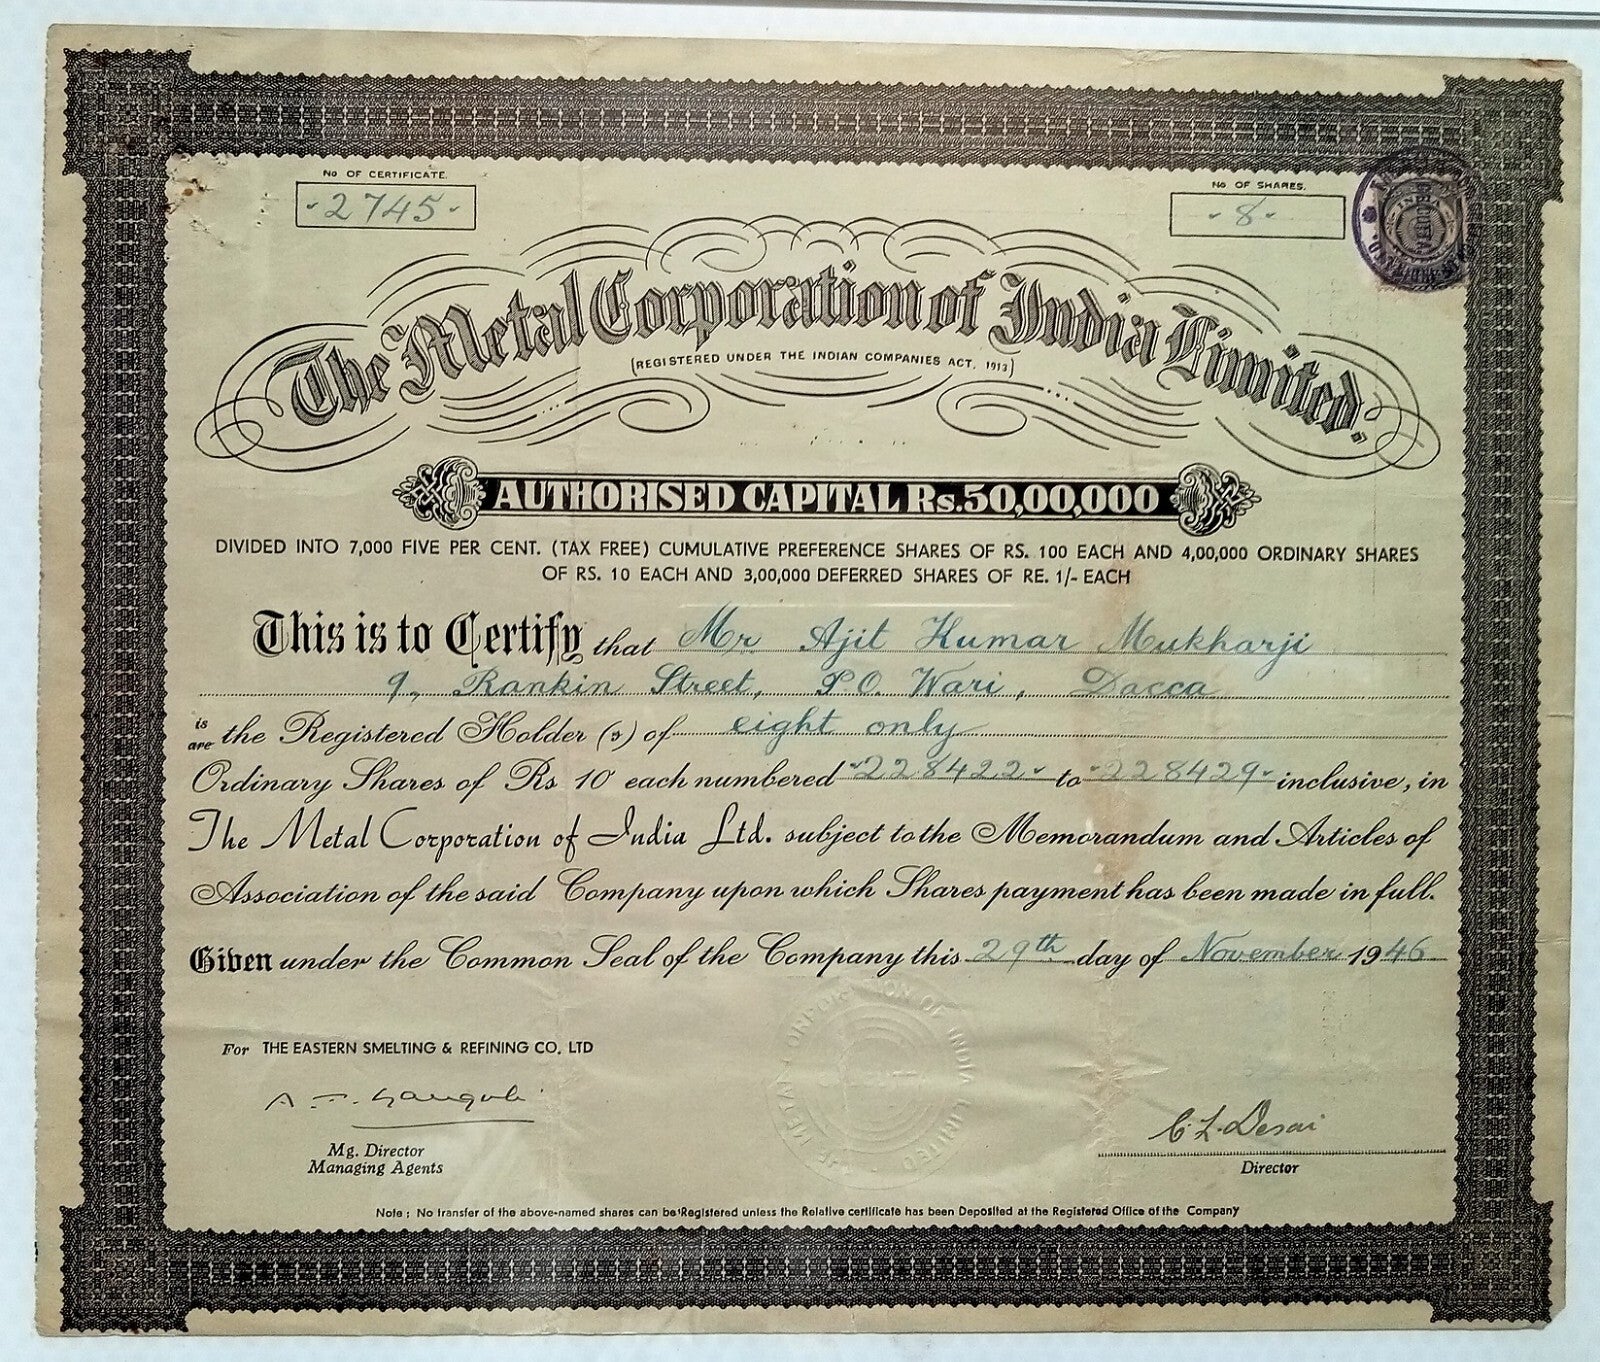 No OF CERTIFICATE.
-2745-
No OF SHARES.
-8-
The Metal Corporation of India Limited.
(REGISTERED UNDER THE INDIAN COMPANIES ACT, 1913)
AUTHORISED CAPITAL Rs.50,00,000
DIVIDED INTO 7,000 FIVE PER CENT. (TAX FREE) CUMULATIVE PREFERENCE SHARES OF RS. 100 EACH AND 4,00,000 ORDINARY SHARES
OF RS. 10 EACH AND 3,00,000 DEFERRED SHARES OF RE. 1/- EACH
This is to Certify that Mr Ajit Kumar Mukharji
9, Rankin Street, P.O. Wari, Dacca
is are the Registered Holder (s) of eight only
Ordinary Shares of Rs 10 each numbered -228422- to -228429- inclusive, in
The Metal Corporation of India Ltd. subject to the Memorandum and Articles of
Association of the said Company upon which Shares payment has been made in full.
Given under the Common Seal of the Company this 29th day of November 1946
METAL CORPORATION OF INDIA LIMITED
For THE EASTERN SMELTING & REFINING CO. LTD
Mg. Director
Managing Agents
C. L. Desai
Director
Note ; No transfer of the above-named shares can be Registered unless the Relative certificate has been Deposited at the Registered Office of the Company